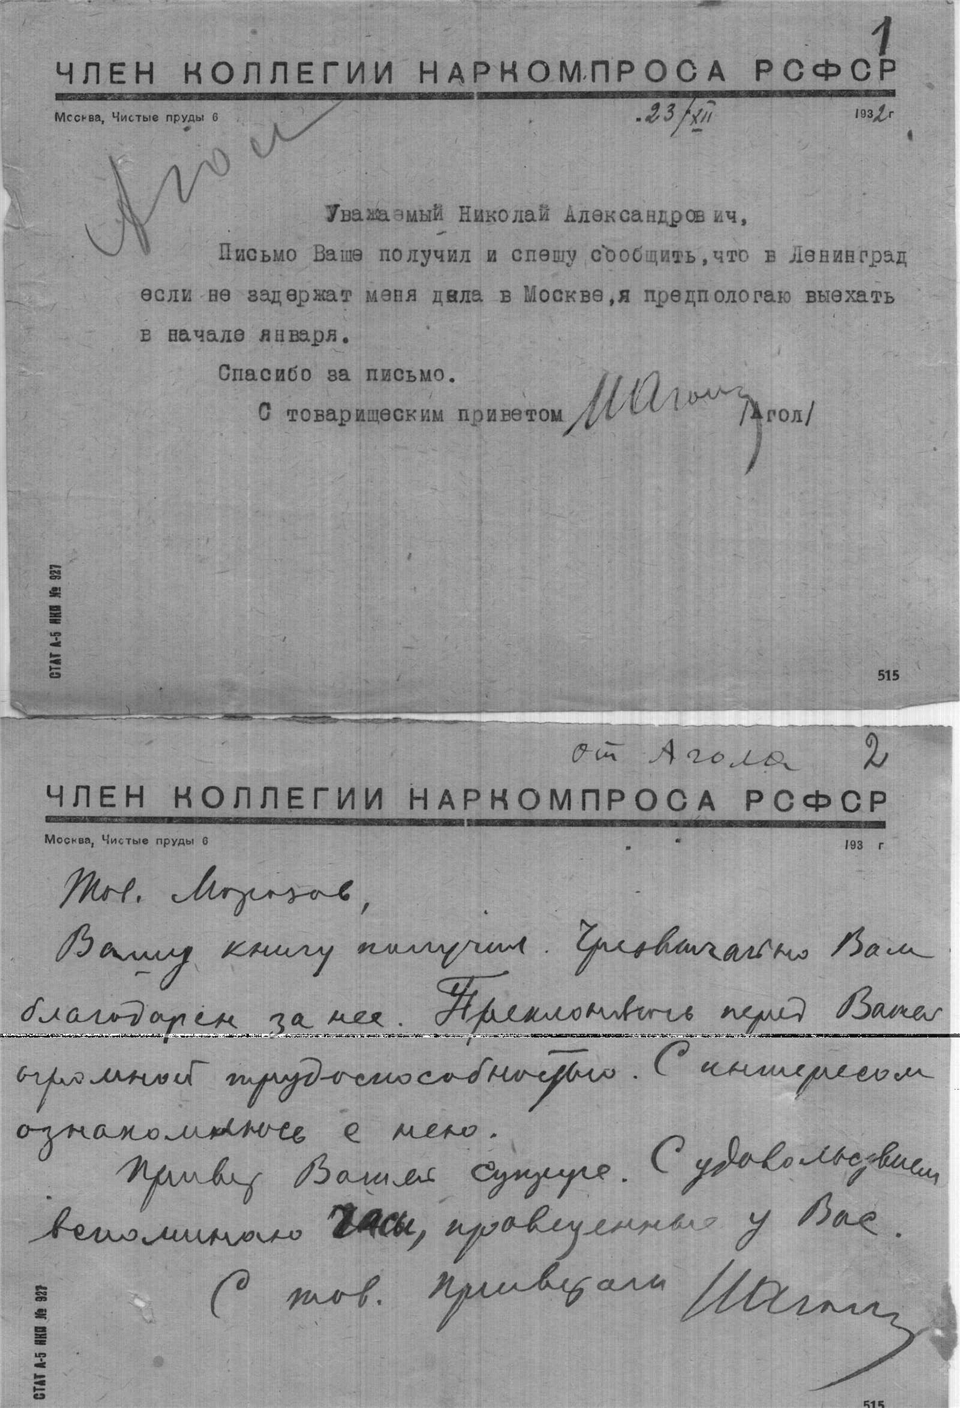 1
ЧЛЕН КОЛЛЕГИИ НАРКОМПРОСА РСФСР
Москва, Чистые пруды 6 23/XII 1932 г
Агол
Уважаемый Николай Александрович,
Письмо Ваше получил и спешу сообщить, что в Ленинград
если не задержат меня дела в Москве, я предпологаю выехать
в начале января.
Спасибо за письмо.
С товарищеским приветом ИАгол /Агол/
СТАТ А-5 НКП № 927
515
от Агола 2
ЧЛЕН КОЛЛЕГИИ НАРКОМПРОСА РСФСР
Москва, Чистые пруды 6 193 г
Тов. Морозов,
Вашу книгу получил. Чрезвычайно Вам
благодарен за нее. Преклоняюсь перед Вашей
огромной трудоспособностью. С интересом
ознакомлюсь с нею.
Привет Вашей супруге. С удовольствием
вспоминаю часы, проведенные у Вас.
С тов. приветом ИАгол
СТАТ А-5 НКП № 927
515